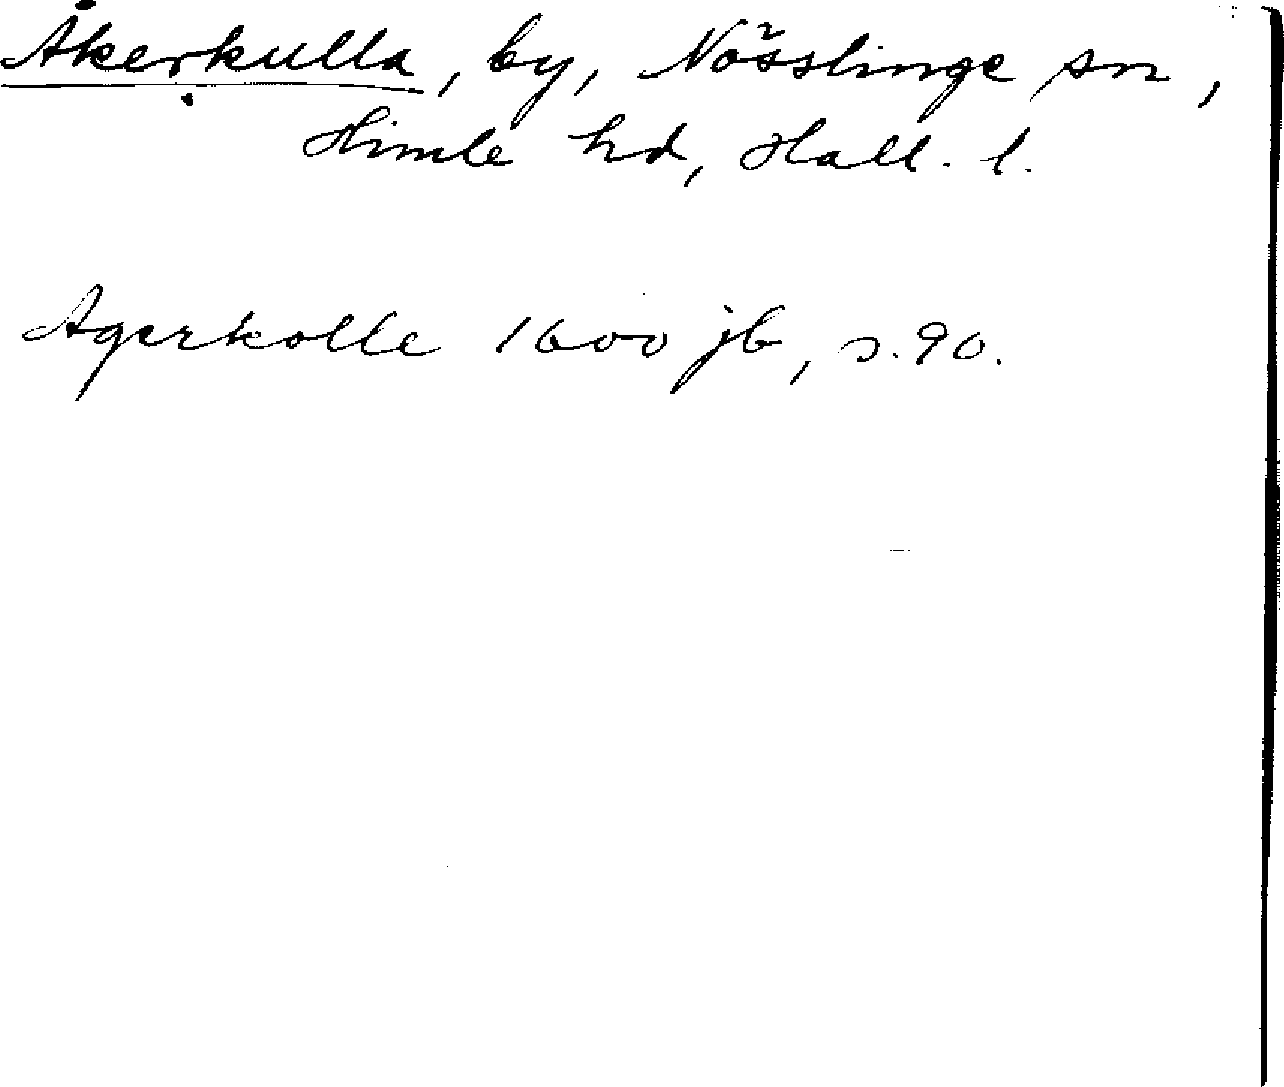 Åkerkulla, by, Nösslinge sn,
Himle hd, Hall. l.
Agerkolle 1600 jb, s. 90.